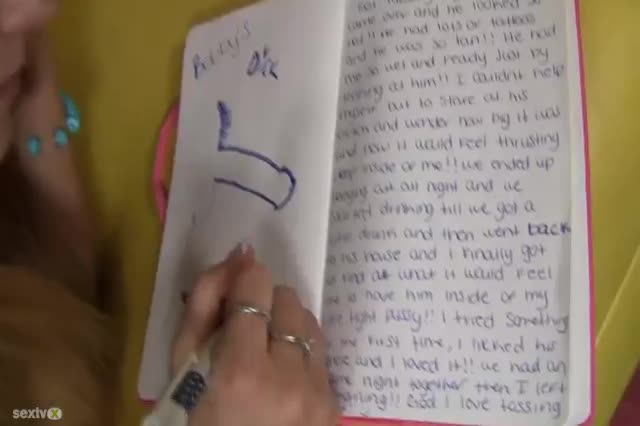 Dick
came over and he looked so
hot!! He had lots of tattoos
and he was so tan!! He had
me so wet and ready just by
looking at him!! I couldnt help
myself but to stare at his
and wonder how big it was
and how it would feel thrusting
deep inside of me!! we ended up
hanging out all night and we
drinking till we got a
and then went back
to his house and I finally got
to find out what it would feel
like to have him inside of my
tight pussy!! I tried something
the first time, I licked his
and I loved it!! we had an
night together then I left
God I love tossing
sexivox